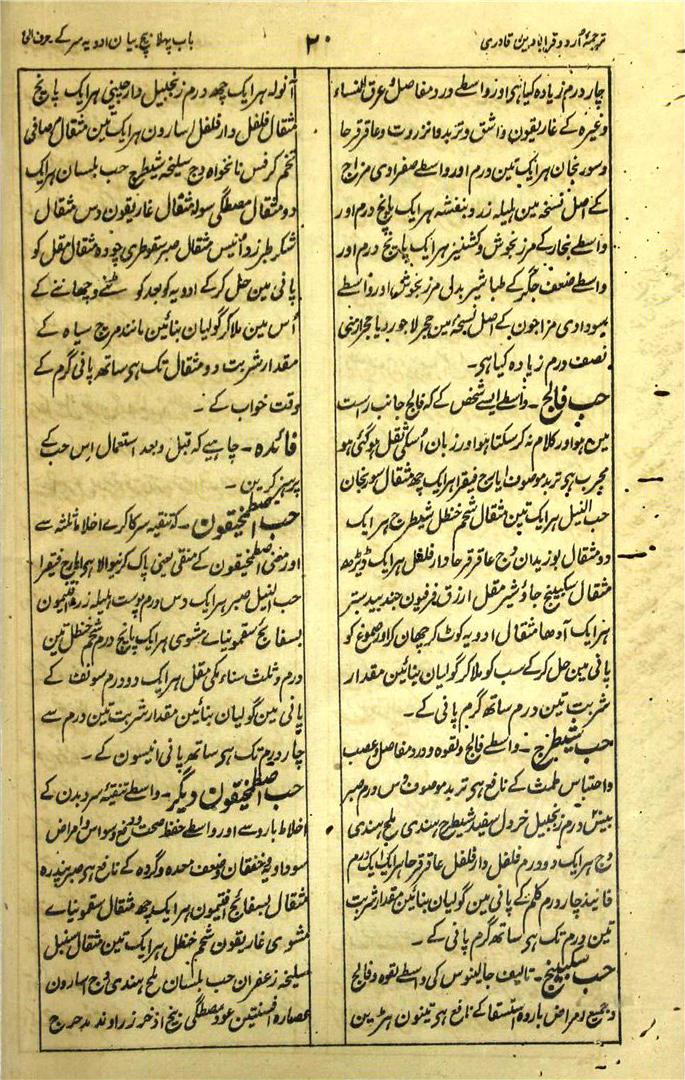 ترجمۂ اردو قرابادین قادری
۲۰
باب پہلا بیچ بیان ادویہ سر کے بحرف الخ
چار درم زیادہ کیا ہی اور واسطے درد مفاصل و عرق النساء
وغیرہ کے غاریقون و اشق و تربد و انزروت و عاقرقرحا
و سورنجان ہر ایک تین درم اور واسطے صفراوی مزاج
کے اصل نسخہ مین ہلیلہ زرد و بنفشہ ہر ایک پانچ درم اور
واسطے بخار کے مرزنجوش و کشنیز ہر ایک پانچ درم اور
واسطے ضعف جگر کے طباشیر بدلی مرزنجوش اور واسطے
سوداوی مزاجون کے اصل نسخہ مین حجر لاجورد یا حجر ارمنی
نصف درم زیادہ کیا ہی۔
حب فالج۔ واسطے ایسے شخص کے کہ فالج جانب راست
مین ہو اور کلام نہ کر سکتا ہو اور زبان اُسکی ثقل ہو گئی ہو
مجرب ہی تربد موصوف ایارج فیقرا ہر ایک چھ مثقال سورنجان
حب النیل ہر ایک تین مثقال شحم حنظل شیطرج ہر ایک
دو مثقال بوزیدان وج عاقرقرحا دار فلفل ہر ایک ڈیڑھ
مثقال سکبینج جاؤشیر مقل ارزق فرفیون جند بیدستر
ہر ایک آدھا مثقال ادویہ کو کوٹ کر چھان کر اور صموغ کو
پانی مین حل کر کے سب کو ملا کر گولیان بنائین مقدار
شربت تین درم ساتھ گرم پانی کے۔
حب شیطرج۔ واسطے فالج و لقوہ و درد مفاصل و عصب
و احتباس طمث کے نافع ہی تربد موصوف دس درم صبر
بیس درم زنجبیل خردل سفید شیطرج ہندی ملح ہندی
وج ہر ایک دو درم فلفل دار فلفل عاقرقرحا ہر ایک ایک درم
فانیذ چار درم کلم کے پانی مین گولیان بنائین مقدار شربت
تین درم تک ہی ساتھ گرم پانی کے۔
حب سکبینج۔ تالیف جالینوس کی واسطے لقوہ و فالج
و جمیع امراض باردہ و استسقا کے نافع ہی تینون ہڑین
آنولہ ہر ایک چھ درم زنجبیل دارچینی ہر ایک پانچ
مثقال فلفل دار فلفل اسارون ہر ایک تین مثقال صافی
تخم کرفس نانخواہ وج سلیخہ شیطرج حب بلسان ہر ایک
دو مثقال مصطگی سولہ مثقال غاریقون دس مثقال
شکر طبرزد اُنیس مثقال صبر سقوطری چودہ مثقال مقل کو
پانی مین حل کر کے ادویہ کو بعد کوٹنے و چھاننے کے
اُس مین ملا کر گولیان بنائین مانند مرچ سیاہ کے
مقدار شربت دو مثقال تک ہی ساتھ پانی گرم کے
وقت خواب کے۔
فائدہ۔ چاہیے کہ قبل و بعد استعمال اس حب کے
پرہیز کرین۔
حب اصطمخیقون۔ کہ تنقیہ سر کا کرے اخلاط ثلثہ سے
اور معنی اصطمخیقون کے منقی یعنی پاک کرنیوالا ہی ایارج فیقرا
حب النیل صبر ہر ایک دس درم پوست ہلیلہ زرد افتیمون
بسفائج سقمونیاے مشوی ہر ایک پانچ درم شحم حنظل تین
درم و ثلث سناء مکی مقل ہر ایک دو درم سونف کے
پانی مین گولیان بنائین مقدار شربت تین درم سے
چار درم تک ہی ساتھ پانی انیسون کے۔
حب اصطمخیقون دیگر۔ واسطے تنقیہ سر و بدن کے
اخلاط باردہ سے اور واسطے حفظ صحت و دفع وسواس و امراض
سوداویہ و خفقان و ضعف معدہ و گردہ کے نافع ہی صبر پندرہ
مثقال بسفائج افتیمون ہر ایک چھ مثقال سقمونیاے
مشوی غاریقون شحم حنظل ہر ایک تین مثقال سنبل
سلیخہ زعفران حب بلسان ملح ہندی وج اسارون
عصارہ افسنتین عود مصطگی بیخ اذخر زراوند مدحرج